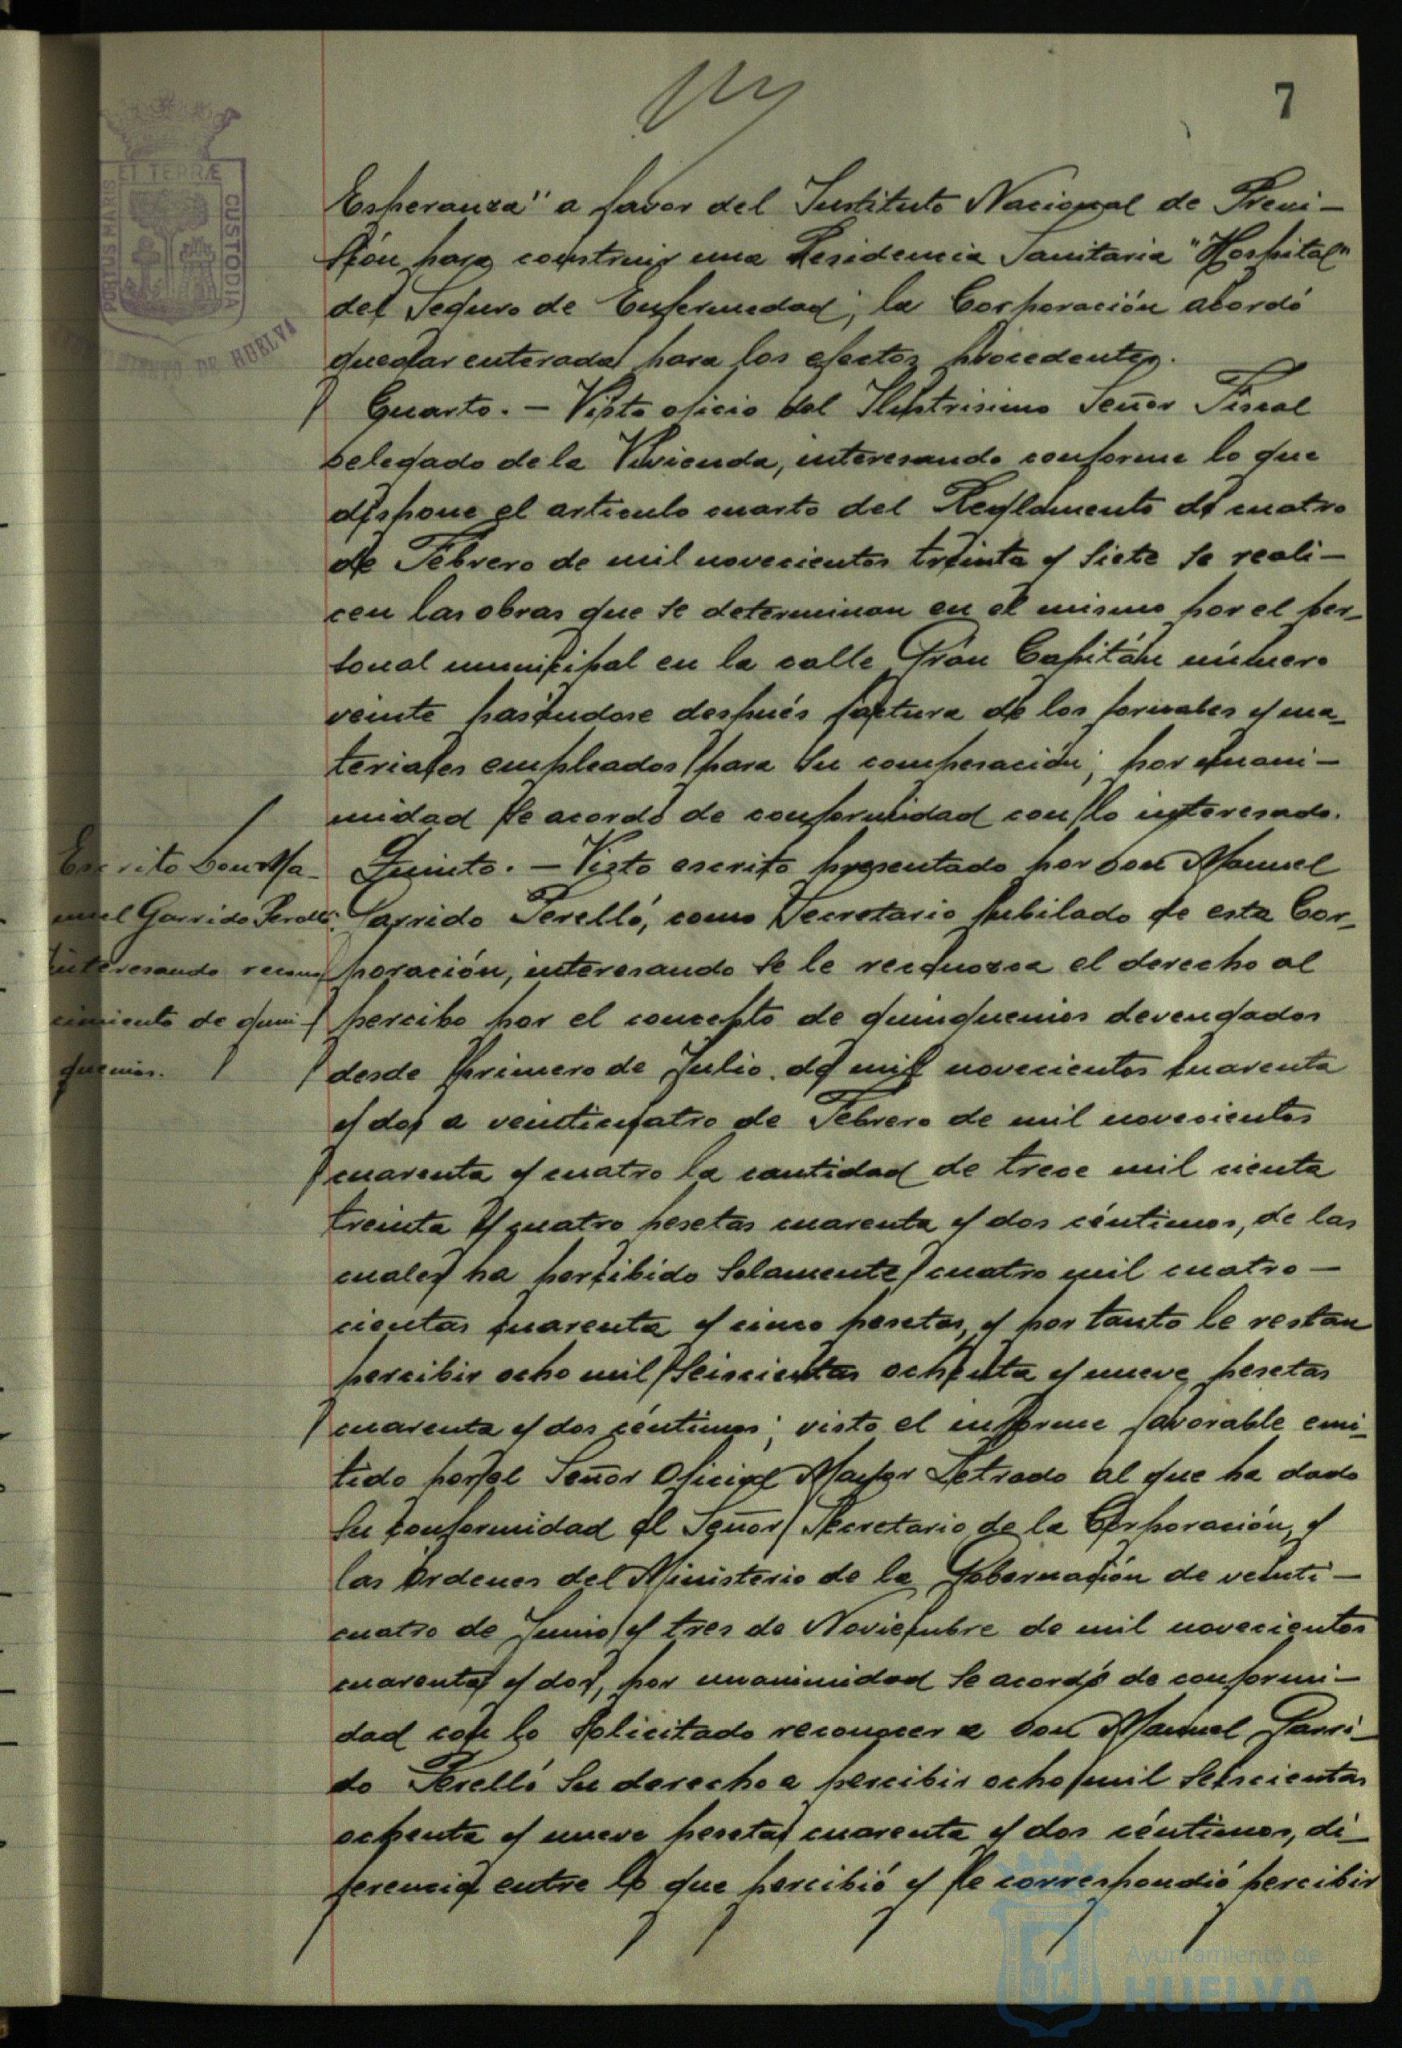 7
PORTUS MARIS
ET TERRÆ
CUSTODIA
DE HUELVA
Esperanza" a favor del Instituto Nacional de Previ-
sión para construir una Residencia Sanitaria "Hospital"
del Seguro de Enfermedad; la Corporación acordó
quedar enterada para los efectos procedentes.
Cuarto. - Visto oficio del Ilustrisimo Señor Fiscal
Delegado de la Vivienda, interesando conforme lo que
dispone el articulo cuarto del Reglamento de cuatro
de Febrero de mil novecientos treinta y siete se reali-
cen las obras que se determinan en el mismo por el per-
sonal municipal en la calle Gran Capitán número
veinte pasándose después factura de los jornales y ma-
teriales empleados para su compensación; por unani-
midad se acordó de conformidad con lo interesado.
Escrito Don Ma-
nuel Garrido Perelló
interesando recono
cimiento de quin-
quenios.
Quinto. - Visto escrito presentado por Don Manuel
Garrido Perelló, como Secretario jubilado de esta Cor-
poración, interesando se le reconozca el derecho al
percibo por el concepto de quinquenios devengados
desde primero de Julio de mil novecientos cuarenta
y dos a veinticuatro de Febrero de mil novecientos
cuarenta y cuatro la cantidad de trece mil cienta
treinta y cuatro pesetas cuarenta y dos céntimos, de las
cuales ha percibido solamente cuatro mil cuatro-
cientas cuarenta y cinco pesetas, y por tanto le restan
percibir ocho mil seiscientas ochenta y nueve pesetas
cuarenta y dos céntimos; visto el informe favorable emi-
tido por el Señor Oficial Mayor Letrado al que ha dado
su conformidad el Señor Secretario de la Corporación, y
las Ordenes del Ministerio de la Gobernación de veinti-
cuatro de Junio y tres de Noviembre de mil novecientos
cuarenta y dos, por unanimidad se acordó de conformi-
dad con lo solicitado reconocer a Don Manuel Garri-
do Perelló su derecho a percibir ocho mil seiscientas
ochenta y nueve pesetas cuarenta y dos céntimos, di-
ferencia entre lo que percibió y le correspondió percibir
Ayuntamiento de
HUELVA